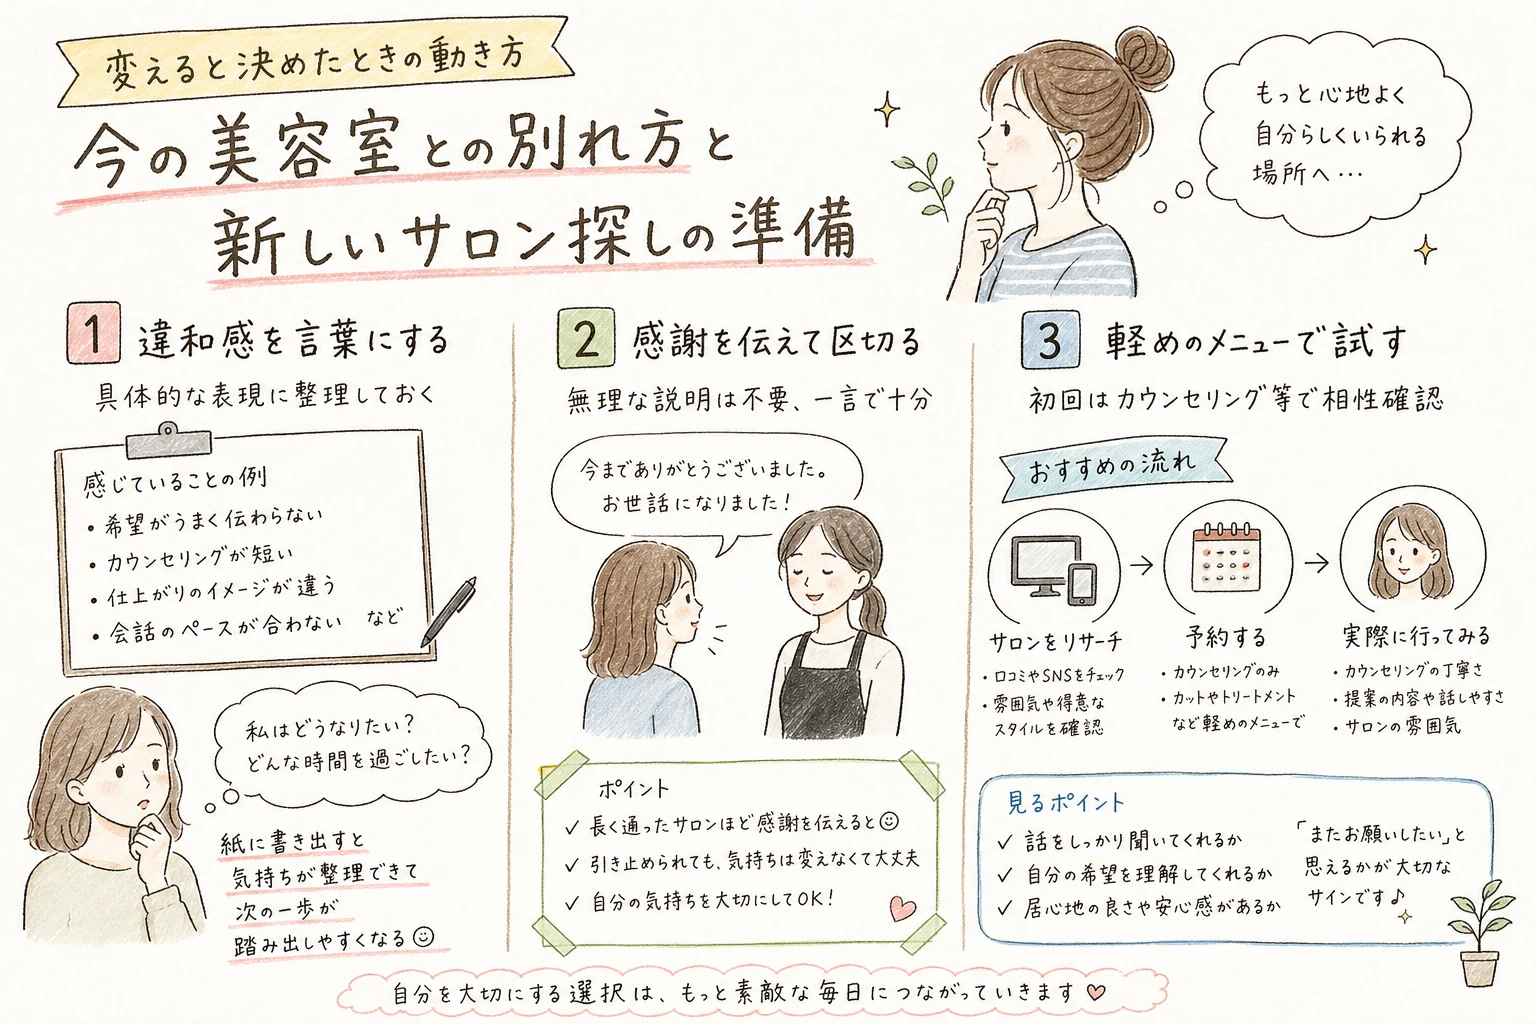 変えると決めたときの動き方
今の美容室との別れ方と
新しいサロン探しの準備
もっと心地よく
自分らしくいられる
場所へ…
1 違和感を言葉にする
具体的な表現に整理しておく
感じていることの例
• 希望がうまく伝わらない
• カウンセリングが短い
• 仕上がりのイメージが違う
• 会話のペースが合わない など
私はどうなりたい?
どんな時間を過ごしたい?
紙に書き出すと
気持ちが整理できて
次の一歩が
踏み出しやすくなる☺
2 感謝を伝えて区切る
無理な説明は不要、一言で十分
今までありがとうございました。
お世話になりました!
ポイント
✓ 長く通ったサロンほど感謝を伝えると☺
✓ 引き止められても、気持ちは変えなくて大丈夫
✓ 自分の気持ちを大切にしてOK!
3 軽めのメニューで試す
初回はカウンセリング等で相性確認
おすすめの流れ
サロンをリサーチ
・口コミやSNSをチェック
・雰囲気や得意な
スタイルを確認
予約する
・カウンセリングのみ
・カットやトリートメント
など軽めのメニューで
実際に行ってみる
・カウンセリングの丁寧さ
・提案の内容や話しやすさ
・サロンの雰囲気
見るポイント
✓ 話をしっかり聞いてくれるか
✓ 自分の希望を理解してくれるか
✓ 居心地の良さや安心感があるか
「またお願いしたい」と
思えるかが大切な
サインです♪
自分を大切にする選択は、もっと素敵な毎日につながっていきます♡